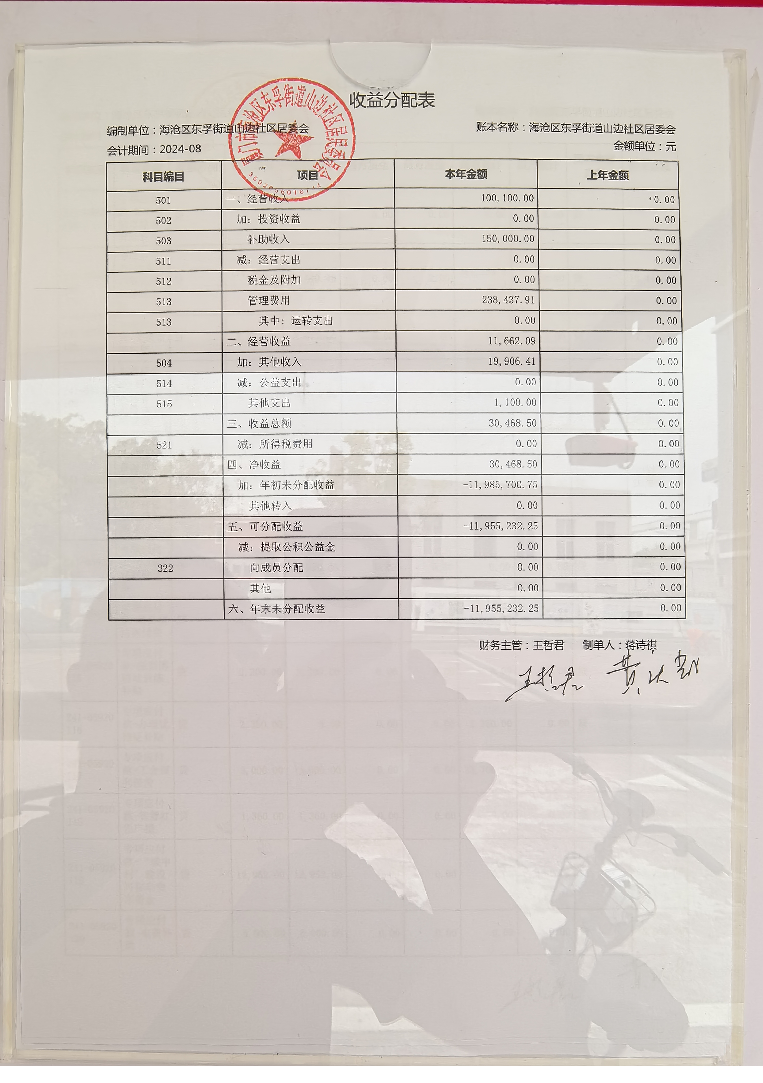 收益分配表
编制单位：海沧区东孚街道山边社区居委会 账本名称：海沧区东孚街道山边社区居委会
会计期间：2024-08 金额单位：元
科目编目 项目 本年金额 上年金额
501 一、经营收入 100,100.00 0.00
502 加：投资收益 0.00 0.00
503 补助收入 150,000.00 0.00
511 减：经营支出 0.00 0.00
512 税金及附加 0.00 0.00
513 管理费用 238,437.91 0.00
513 其中：运转支出 0.00 0.00
二、经营收益 11,662.09 0.00
504 加：其他收入 19,906.41 0.00
514 减：公益支出 0.00 0.00
515 其他支出 1,100.00 0.00
三、收益总额 30,468.50 0.00
521 减：所得税费用 0.00 0.00
四、净收益 30,468.50 0.00
加：年初未分配收益 -11,985,700.75 0.00
其他转入 0.00 0.00
五、可分配收益 -11,955,232.25 0.00
减：提取公积公益金 0.00 0.00
322 向成员分配 0.00 0.00
其他 0.00 0.00
六、年末未分配收益 -11,955,232.25 0.00
财务主管：王哲君 制单人：蒋诗祺
王哲君
厦门市海沧区东孚街道山边社区居民委员会